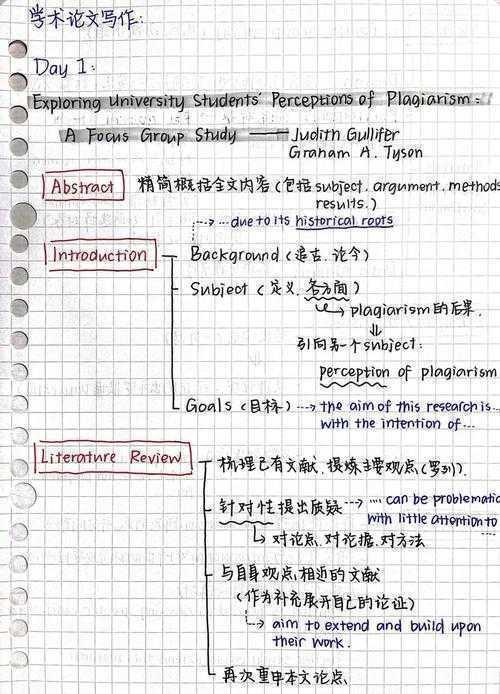 学术论文写作:
Day 1:
Exploring University Students' Perceptions of Plagiarism:
A Focus Group Study —— Judith Gullifer
Graham A. Tyson
Abstract 精简概括全文内容(包括subject. argument. methods
results.)
...due to its historical roots
Introduction Background (追古. 论今)
Subject (定义. 各方面)
plagiarism的后果.
引向另一个subject:
perception of plagiarism
Goals (目标) the aim of this research is...
with the intention of...
Literature Review 梳理已有文献. 提炼主要观点(罗列).
针对性提出质疑 ... can be problematic
with little attention to
对论点. 对论据. 对方法
与自身观点相近的文献
(作为补充展开自己的论证)
aim to extend and build upon
their work.
再次重申本文论点.